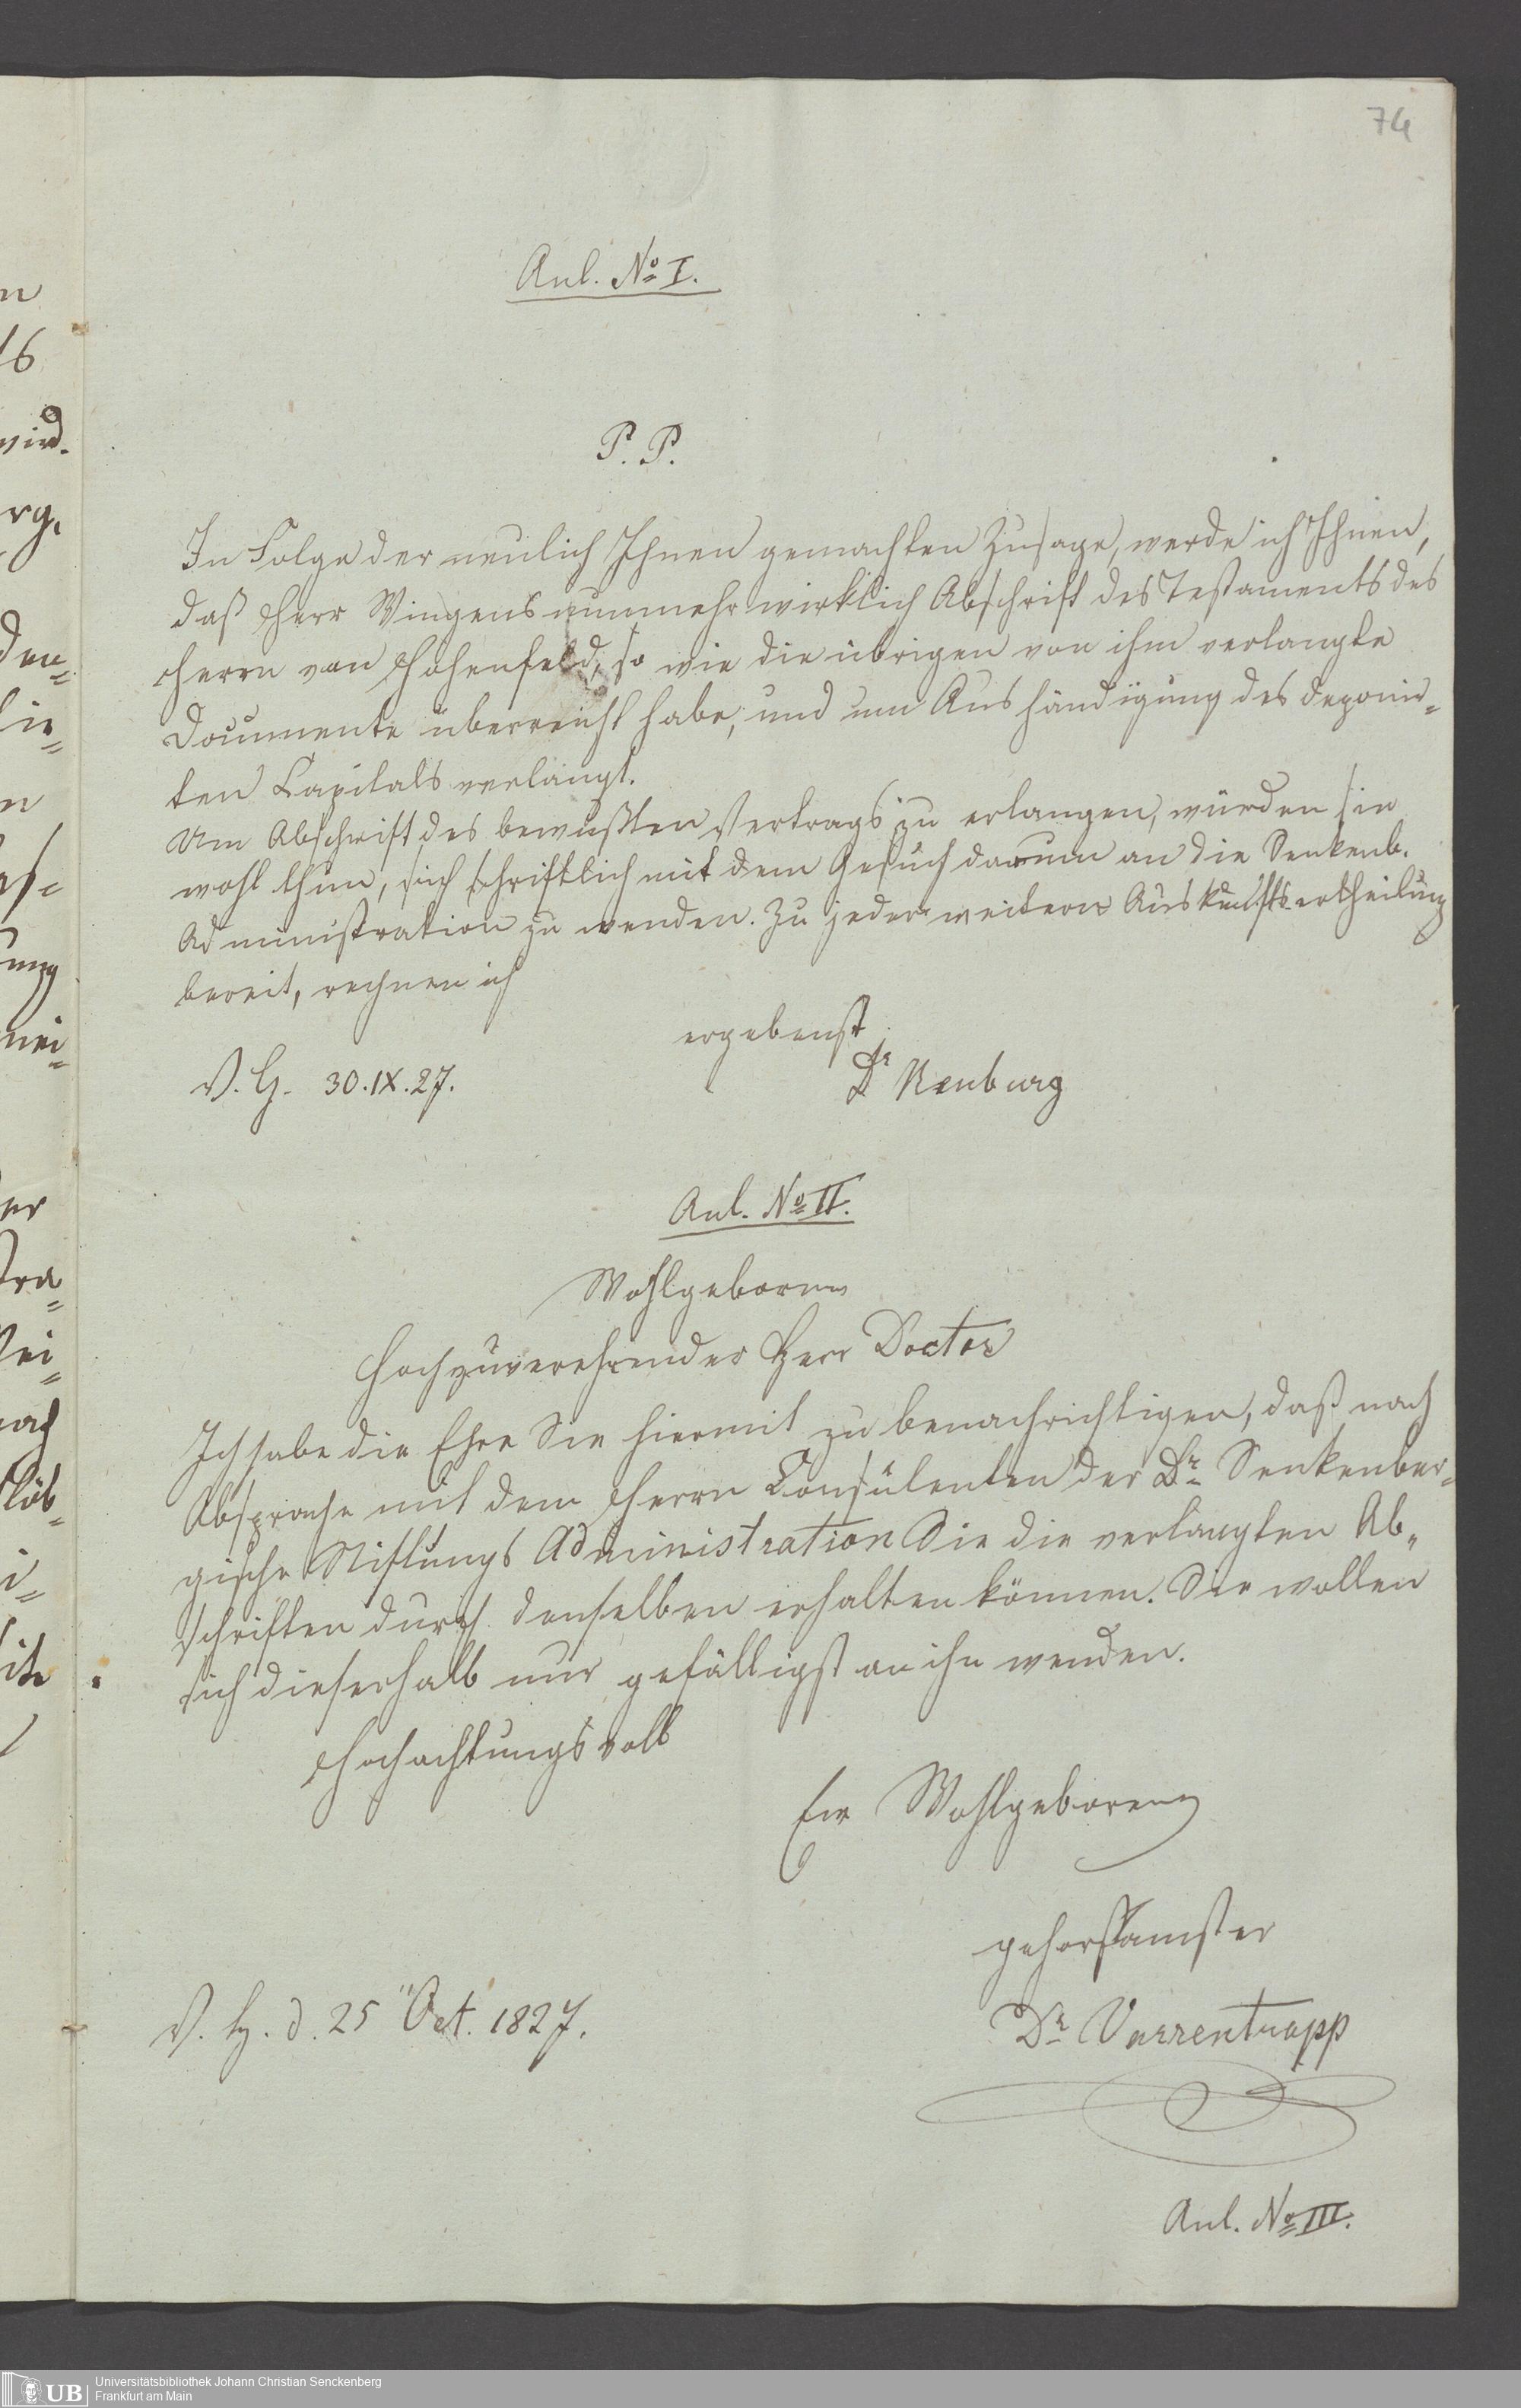 74
Anl. No I.
P. P.
In Folge der neulich Ihnen gemachten Zusage, werde ich Ihnen,
daß Herr Wingens nunmehr wirklich Abschrift des Testaments des
Herrn von Hohenfeld, so wie die übrigen von ihm verlangte
Documente überreicht habe, und um Aushändigung des deponir=
ten Capitals verlangt.
Um Abschrift des bewußten Vertrags zu erlangen, würden sie
wohl thun, sich schriftlich mit dem Gesuch darum an die Senkenb.
Administration zu wenden. Zu jeder weitern Auskunftsertheilung
bereit, ich
ergebenst
V. H. 30.IX.27.
Dr Neuburg
Anl. No II.
Wohlgeboren
Hochzuverehrender Herr Doctor
Ich habe die Ehre Sie hiermit zu benachrichtigen, daß nach
Absprache mit dem Herrn Consulenten der Dr Senkenber=
gische Stiftungs Administration Sie die verlangten Ab„
schriften durch denselben erhalten können. Sie wollen
sich dieserhalb nur gefälligst an ihn wenden.
Hochachtungsvoll
Ew Wohlgeboren
gehorsamster
V. H. d. 25" Oct. 1827.
Dr Varrentrapp
Anl. No III.
UB
Universitätsbibliothek Johann Christian Senckenberg
Frankfurt am Main